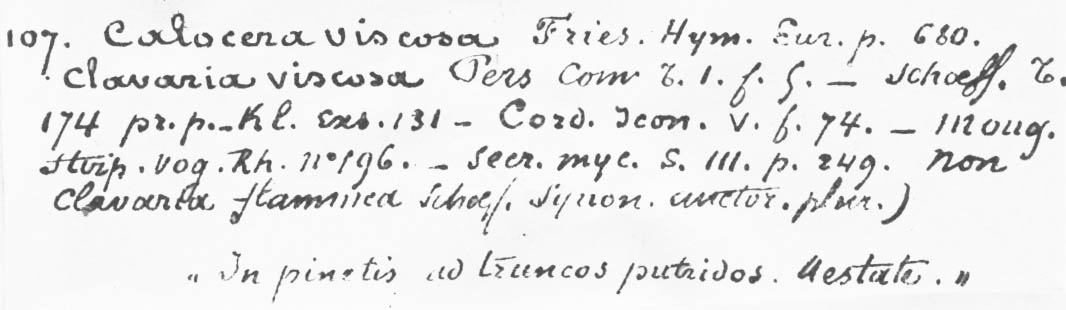 107. Calocera viscosa Fries. Hym. Eur. p. 680.
Clavaria viscosa Pers Com t. 1. f. 5. — Schaeff. t.
174 pr. p. — Kl. exs. 131 — Cord. Icon. V. f. 74. — Moug.
Stirp. Vog. Rh. n° 196. — Secr. myc. S. III. p. 249. Non
Clavaria flammea Schaeff. Synon. auctor. plur.)
„ In pinetis ad truncos putridos. Aestate. „